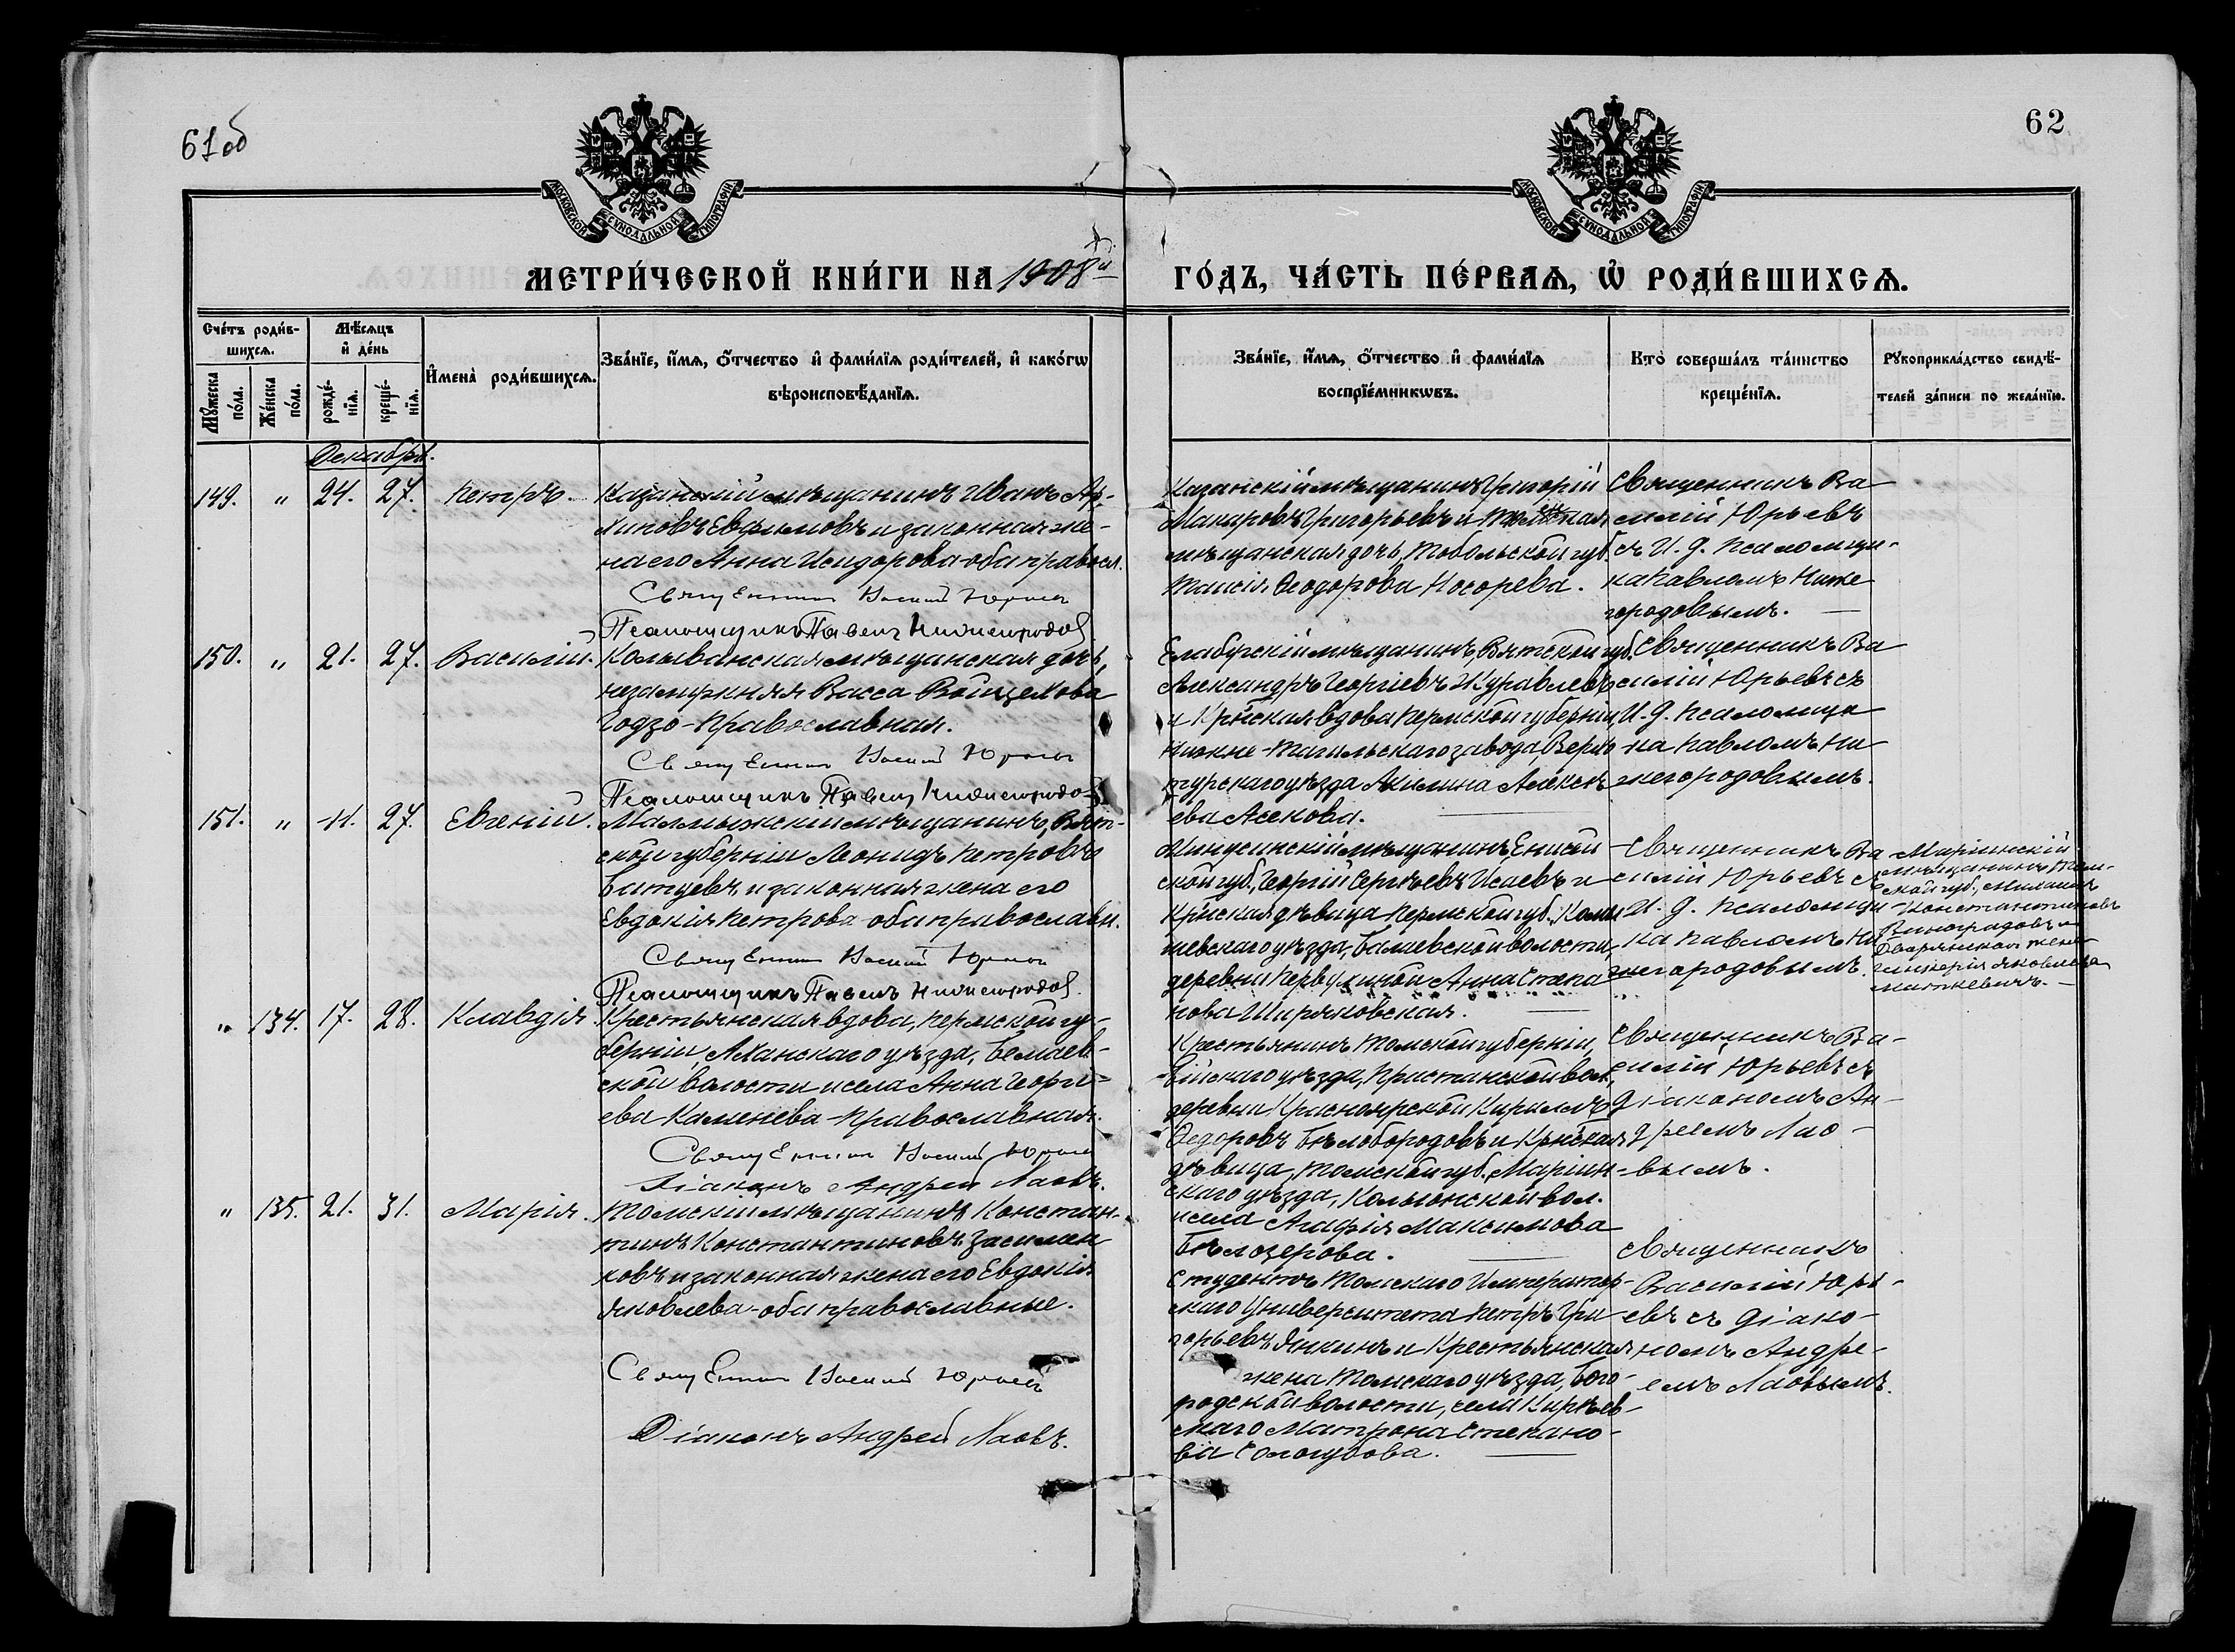 61об
62
МОСКОВСКОЙ СѴНОДАЛЬНОЙ ТИПОГРАФІИ
МОСКОВСКОЙ СѴНОДАЛЬНОЙ ТИПОГРАФІИ
МЕТРИ́ЧЕСКОЙ КНИ́ГИ НА 1908й ГО́ДЪ, ЧА́СТЬ ПЕ́РВАѦ, Ѡ҆ РОДИ́ВШИХСѦ.
Сче́тъ роди́в-
шихсѧ.
Мꙋ́жеска по́ла.
Же́нска по́ла.
Мѣ́сѧцъ
и҆ де́нь
рожде́-
нїѧ.
креще́-
нїѧ.
И҆мена̀ роди́вшихсѧ.
Зва́нїе, и҆́мѧ, ѻ҆́тчество и҆ фами́лїѧ роди́телей, и҆ како́гѡ
вѣроисповѣ́данїѧ.
Зва́нїе, и҆́мѧ, ѻ҆́тчество и҆ фами́лїѧ
воспрїе́мникѡвъ.
Кто̀ соверша́лъ та́инство
креще́нїѧ.
Рꙋкоприкла́дство свидѣ́-
телей за́писи по жела́нїю.
Декабрь.
149. " 24. 27. Петръ.
Казанскій мѣщанинъ Иванъ Ар-
хиповъ Евфимовъ и законная же-
на его Анна Исидорова-оба правосл.
Священникъ Василій Юрьевъ
Псаломщикъ Павелъ Нижегородов
Казанскій мѣщанинъ Григорій
Макаровъ Григорьевъ и
мѣщанская дочь, Тобольской губ.
Таисія Ѳеодорова Носорева.
Священникъ Ва
силій Юрьевъ
съ И. д. псаломщи-
ка Павломъ Ниже
городовымъ.
150. " 21. 27. Василій.
Колыванская мѣщанская дочь,
незамужняя Васса Войцехова
Годзо-православная.
Священникъ Василій Юрьевъ
Псаломщикъ Павелъ Нижегородов
Елабужскій мѣщанинъ, Вятской губ.
Александръ Георгіевъ Журавлевъ
и Крестьянская вдова Пермской губерніи
Нижне-Тагильскаго завода, Верхо
турскаго уѣзда Акилина Алексѣ
ева Асекова.
Священникъ Ва
силій Юрьевъ съ
И. д. псаломщи
ка Павломъ Ни
жегородовымъ.
151. " 11. 27. Евгеній.
Малмыжскій мѣщанинъ, Вят-
ской губерніи Леонидъ Петровъ
Батуевъ и законная жена его
Евдокія Петрова-оба православн.
Священникъ Василій Юрьевъ
Псаломщикъ Павелъ Нижегородов.
Минусинскій мѣщанинъ, Енисей-
ской губ., Георгій Сергѣевъ Исаевъ и
Кр̑нская дѣвица Пермской губ., Камы
шевскаго уѣзда, Балаевской волости,
деревни Первухиной Анна Степа
нова Ширяковская.
Священникъ Ва
силій Юрьевъ съ
И. д. псаломщи
ка Павломъ Ни
жегородовымъ.
Маріинскій
мѣщанинъ Том-
ской губ., Михаилъ
Константиновъ
Виноградовъ и
Дворянская жена
Гликерія Яковлева
Миткевичъ.
" 134. 17. 28. Клавдія
Крестьянская вдова, Пермской гу-
берніи, Аханскаго уѣзда, Беляев-
ской волости и села Анна Георгі-
ева Каменева-православная.
Священникъ Василій Юрьевъ
Діаконъ Андрей Лаовъ.
Крестьянинъ Томской губерніи,
Бійскаго уѣзда, Пристанской вол.
деревни Красноярской Кириллъ
Ѳедоровъ Бѣлобородовъ и Крестьянская
дѣвица, Томской губ., Маріин-
скаго уѣзда, Кольонской вол.
и села Агафія Максимова
Бѣлозерова.
Священникъ Ва-
силій Юрьевъ съ
діакономъ Ан-
дреемъ Лао-
вымъ.
" 135. 21. 31. Марія.
Томскій мѣщанинъ Констан-
тинъ Константиновъ Засилан
ковъ и законная жена его Евдокія
Яковлева-оба православные.
Священникъ Василій Юрьевъ
Діаконъ Андрей Лаовъ.
Студентъ Томскаго Император-
скаго Университета Петръ Гри
горьевъ Янкинъ и Крестьянская
жена Томскаго уѣзда, Бого-
родской волости, села Кирѣев-
скаго Матрона Степано-
ва Сологубова.
Священникъ
Василій Юрь-
евъ съ діако-
номъ Андре-
емъ Лаовымъ.